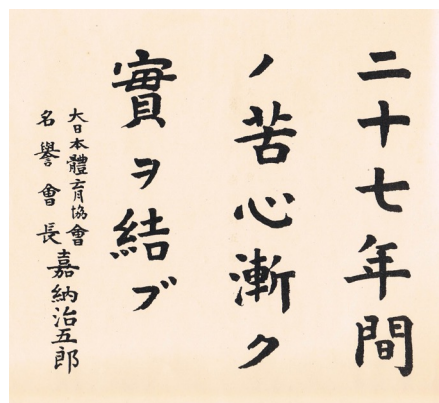 二十七年間
ノ苦心漸ク
實ヲ結ブ
大日本體育協會
名譽會長嘉納治五郎